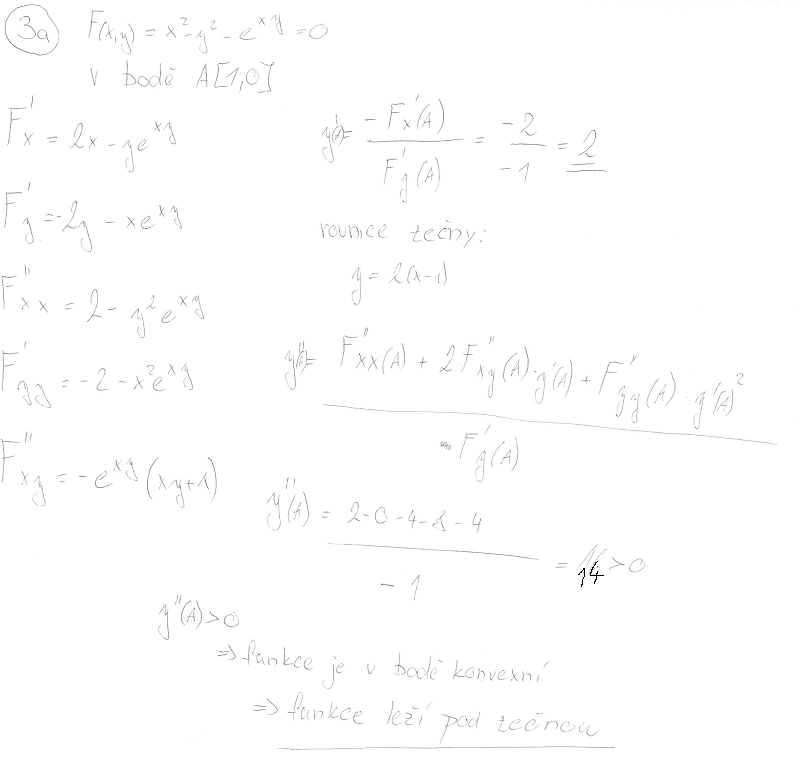 3a F(x,y) = x² - y² - e^xy = 0
v bodě A[1,0]
F'x = 2x - ye^xy
F'y = -2y - xe^xy
F''xx = 2 - y²e^xy
F'yy = -2 - x²e^xy
F''xy = -e^xy (xy+1)
y'(A) = -F'x(A) / F'y(A) = -2 / -1 = 2
rovnice tečny:
y = 2(x-1)
y''(A) = F''xx(A) + 2F''xy(A)·y'(A) + F''yy(A)·y'(A)² / - F'y(A)
y''(A) = 2-0-4-8-4 / -1 = 14 > 0
y''(A) > 0
⇒ funkce je v bodě konvexní
⇒ funkce leží pod tečnou